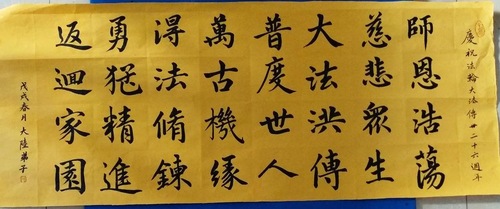 慶祝法輪大法傳世二十六週年
師恩浩蕩
慈悲眾生
大法洪傳
普度世人
萬古機緣
淂法脩鍊
勇猛精進
返迴家園
戊戌春月大陸弟子